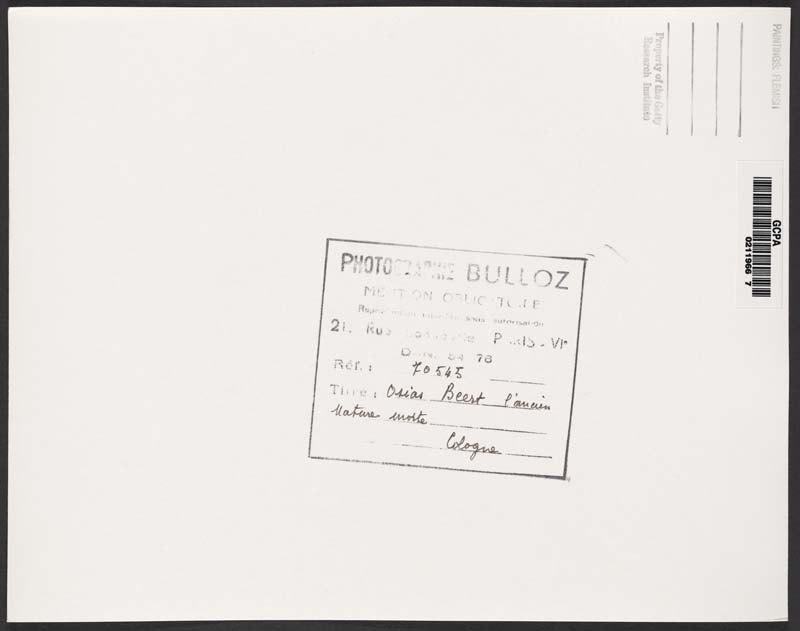 PAINTINGS: FLEMISH
Property of the Getty
Research Institute
GCPA
0211966 7
PHOTOGRAPHIE BULLOZ
MENTION OBLIGATOIRE
Reproduction interdite sous autorisation
21, Rue PARIS-VIe
84 78
Réf.: 70545
Titre: Osias Beert l'ancien
Nature morte
Cologne